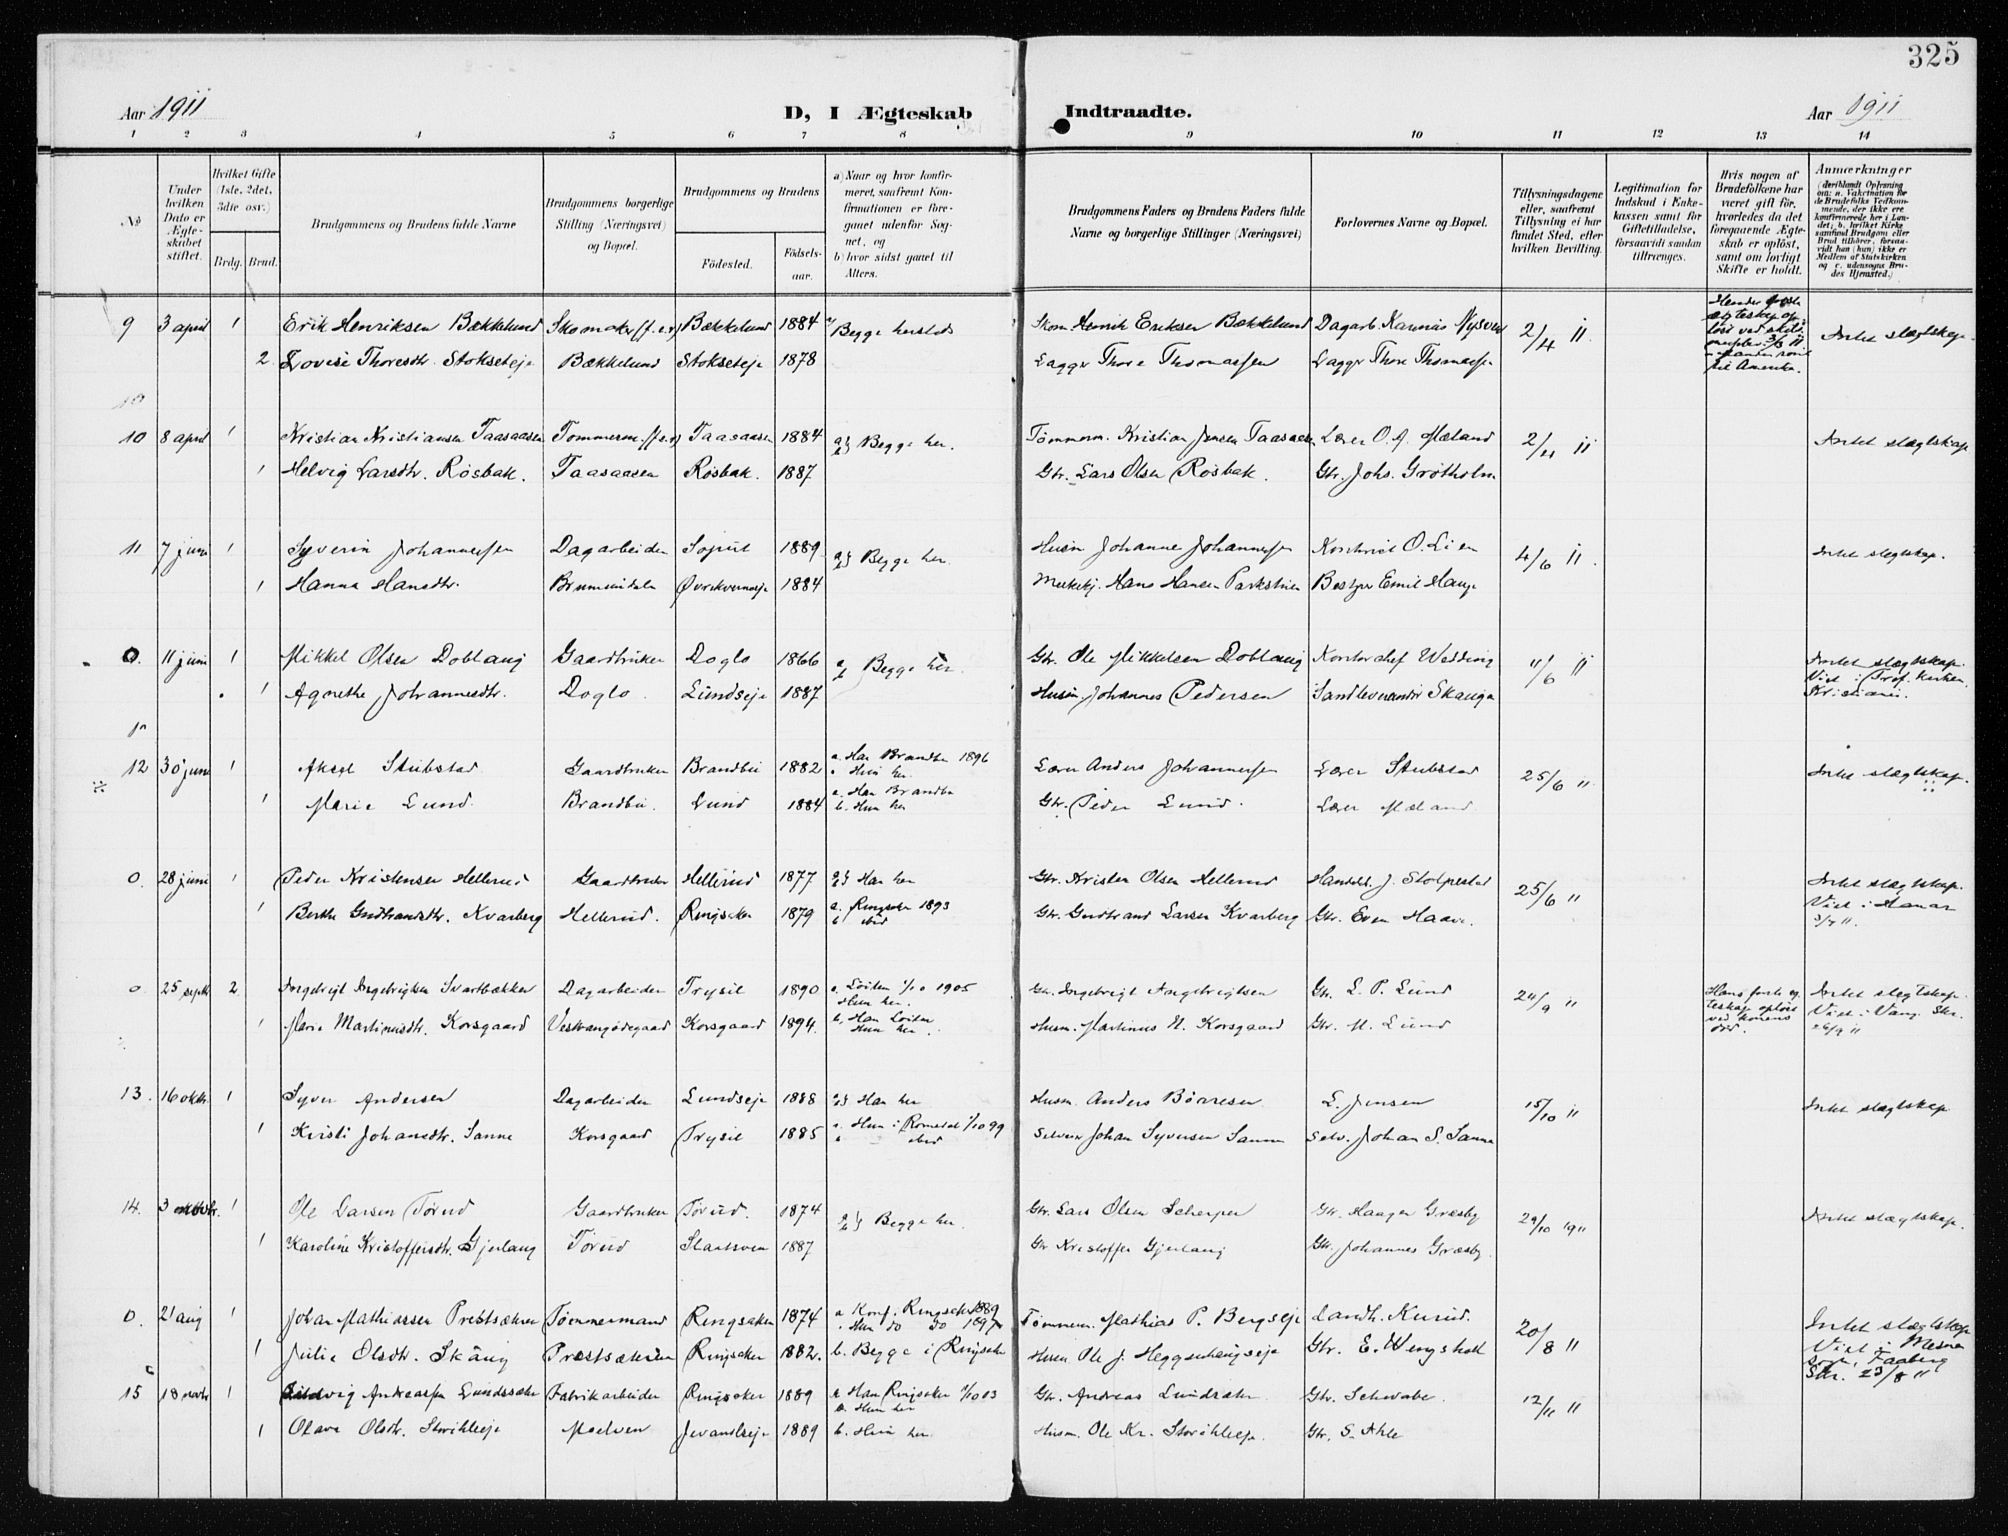 325
Aar 1911 D, I Ægteskab Indtraadte. Aar 1911
1 2 3 4 5 6 7 8 9 10 11 12 13 14
No
Under hvilken Dato er Ægteskabet stiftet.
Hvilket Gifte (1ste, 2det, 3die osv.)
Brdg. Brud.
Brudgommens og Brudens fulde Navne
Brudgommens borgerlige Stilling (Næringsvei) og Bopæl.
Brudgommens og Brudens
Fødested. Fødselsaar.
a) Naar og hvor konfirmeret, saafremt Konfirmationen er foregaaet udenfor Sognet, og
b) hvor sidst gaaet til Alters.
Brudgommens Faders og Brudens Faders fulde Navne og borgerlige Stillinger (Næringsvei)
Forlovernes Navne og Bopæl.
Tillysningsdagene eller, saafremt Tillysning ei har fundet Sted, efter hvilken Bevilling.
Legitimation for Indskud i Enkekassen samt for Giftetilladelse, forsaavidt saadan tiltrænges.
Hvis nogen af Brudefolkene har været gift før, hvorledes da det foregaaende Ægteskab er opløst, samt om lovligt Skifte er holdt.
Anmærkninger
(deriblandt Oplysning om: a. Vakcination for de Brudefolks Vedkommende, der ikke ere konfirmerede her i Landet; b. hvilket Kirkesamfund Brudgom eller Brud tilhører, forsaavidt han (hun) ikke er Medlem af Statskirken og c. udensogns Brudes Hjemsted.)
9 3 april 1 Erik Henriksen Bækkelund Skomaker (f.e.v) Bækkelund 1884 Begge hersteds Skom Henrik Eriksen Bækkelund Dagarb. Karinus Nysven 2/4 11 Intet slægtskap.
2 Lovise Thoresdtr. Stokseteje Bækkelund Stokseteje 1878 Lægger Thore Thomassen Lægger Thore Thomassen til Amerika.
10 8 april 1 Kristian Kristiansen Taasaasen Tømmerm. (f.e.v) Taasaasen 1884 a b Begge her. Tømmerm. Kristian Jensen Taasaasen Lærer O. A. Mæland 2/4 11 Intet slægtskap
1 Helvig Larsdtr. Røsbak. Taasaasen Røsbak. 1887 Gbr. Lars Olsen Røsbak. Gbr. Johs. Grøtholm
11 7 juni 1 Syverin Johannessen Dagarbeider Sojut 1889 a b Begge her. Husm Johanne Johannessen Kontorist O. Lien 4/6 11. Intet slegtskap.
1 Hanna Hansdtr. Brumunddalen Øvrekvernseje 1884 Hans Hansen Bestyrer Emil Hauge
0. 11 juni 1 Mikkel Olsen Doblaug Gaardbruker Doglo 1866 a b Begge her. Gbr. Ole Mikkelsen Doblaug Kontorchef Wedding 11/6 11 Intet slægtskap. Viet i Trof. kirken, Kristiania.
1 Agnethe Johannesdtr. Doglo. Lundseje 1887 Husm. Johannes Pedersen Skauga
12 30 juni 1 Aksel Stubstad Gaardbruker Brandbu 1882 a. Han Brandbu 1896 " Hun her. Lærer Anders Johannessen Lærer Stubstad 25/6 " Intet slægtskap.
1 Marie Lund. Brandbu. Lund 1884 a. Han Brandbu b. Hun her Gbr. Peder Lund. Lærer Mæland
0. 28 juni 1 Peder Kristensen Hellerud Gaardbruker Hellerud 1877 a b Han her Gbr. Kristen Olsen Hellerud Handelsl. J. Stolpestad 25/6 " Intet slegtskap. Viet i Hamar 3/7 11.
1 Berthe Gudbrandsdtr. Kvarberg Hellerud. Ringsaker 1879 a. Ringsaker 1893 b. ibid Gbr. Gudbrand Larsen Kvarberg Gbr. Even Haave.
0 25 septbr 2 Ingebrigt Ingebrigtsen Svartbækken Dagarbeider Trysil 1890 a. Løiten 1/10 1905 Hun her. Gbr. Ingebrigt Ingebrigtsen Gbr. L. P. Lund 24/9 " Hans første egteskap opløst ved konens død. Intet slegtskap. Viet i Vang Skr. 26/9 11
1 Marie Martinusdtr. Korsgaard Vestvangødegaard Korsgaard 1894. b. Han Løiten Hun her. Husm. Martinus N. Korsgaard Gbr. M. Lund
13. 16 oktbr. 1 Syver Andersen Dagarbeider Lundseje 1888 a b Han her Husm. Anders Børresen L. Jensen 15/10 " Intet slægtskap
1 Kristi Johansdtr. Sanne Korsgaard Trysil 1885 a. Hun i Romedal 1/10 99 b ibid Selveier Johan Syversen Sanne Selv. Johan S. Sanne
14. 3 1 Ole Larsen Tørud Gaardbruker Tørud. 1874 a b Begge her. Gbr. Lars Olsen Scherpen Gbr. Haagen Græsby 29/10 1911 Intet slægtskap.
1 Karoline Kristoffersdtr. Gjerlaug Tørud 1887 Gbr Kristoffer Gjerlaug Gbr. Johannes Græsby.
0. 21 aug 1 Johan Mathiassen Prestsæteren Tømmermand Ringsaker 1874 a Konf. Ringsaker 1889 " Hun do do 1897 Tømmerm. Mathias P. Bergseje Landh. Kurud. 20/8 " Intet slægtskap Viet i Mesna sogn, Faaberg Skr. 23/8 11
1 Julie Olsdtr. Skaug Præstsæteren Ringsaker 1882. b. Begge i Ringsaker Husm Ole J. Heggenhaugseje Gbr. E. Wengsholt
15 18 novbr 1 Ludvig Andreassen Lundsæter Fabrikarbeider Ringsaker 1889 a Han Ringsaker 1/10 03 a. Hun her Gbr. Andreas Lundsæter Gbr. Schwabe. 12/11 "
1 Olava Olsdtr. Storihleeje Moelven Jevanlseje 1889 b. Hun her. Husm. Ole Kr. Storihleeje. Gbr. S. Ihle